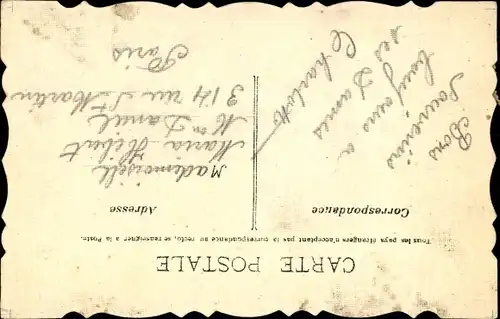 CARTE POSTALE
Tous les pays étrangers n'acceptant pas la correspondance au recto, se renseigner à la Poste.
Correspondance
Bons
Souvenirs
toujours a
ses Dames
Charlotte
Adresse
Mademoiselle
Maria Hébert
Mon Daniel
314 rue St Martin
Paris